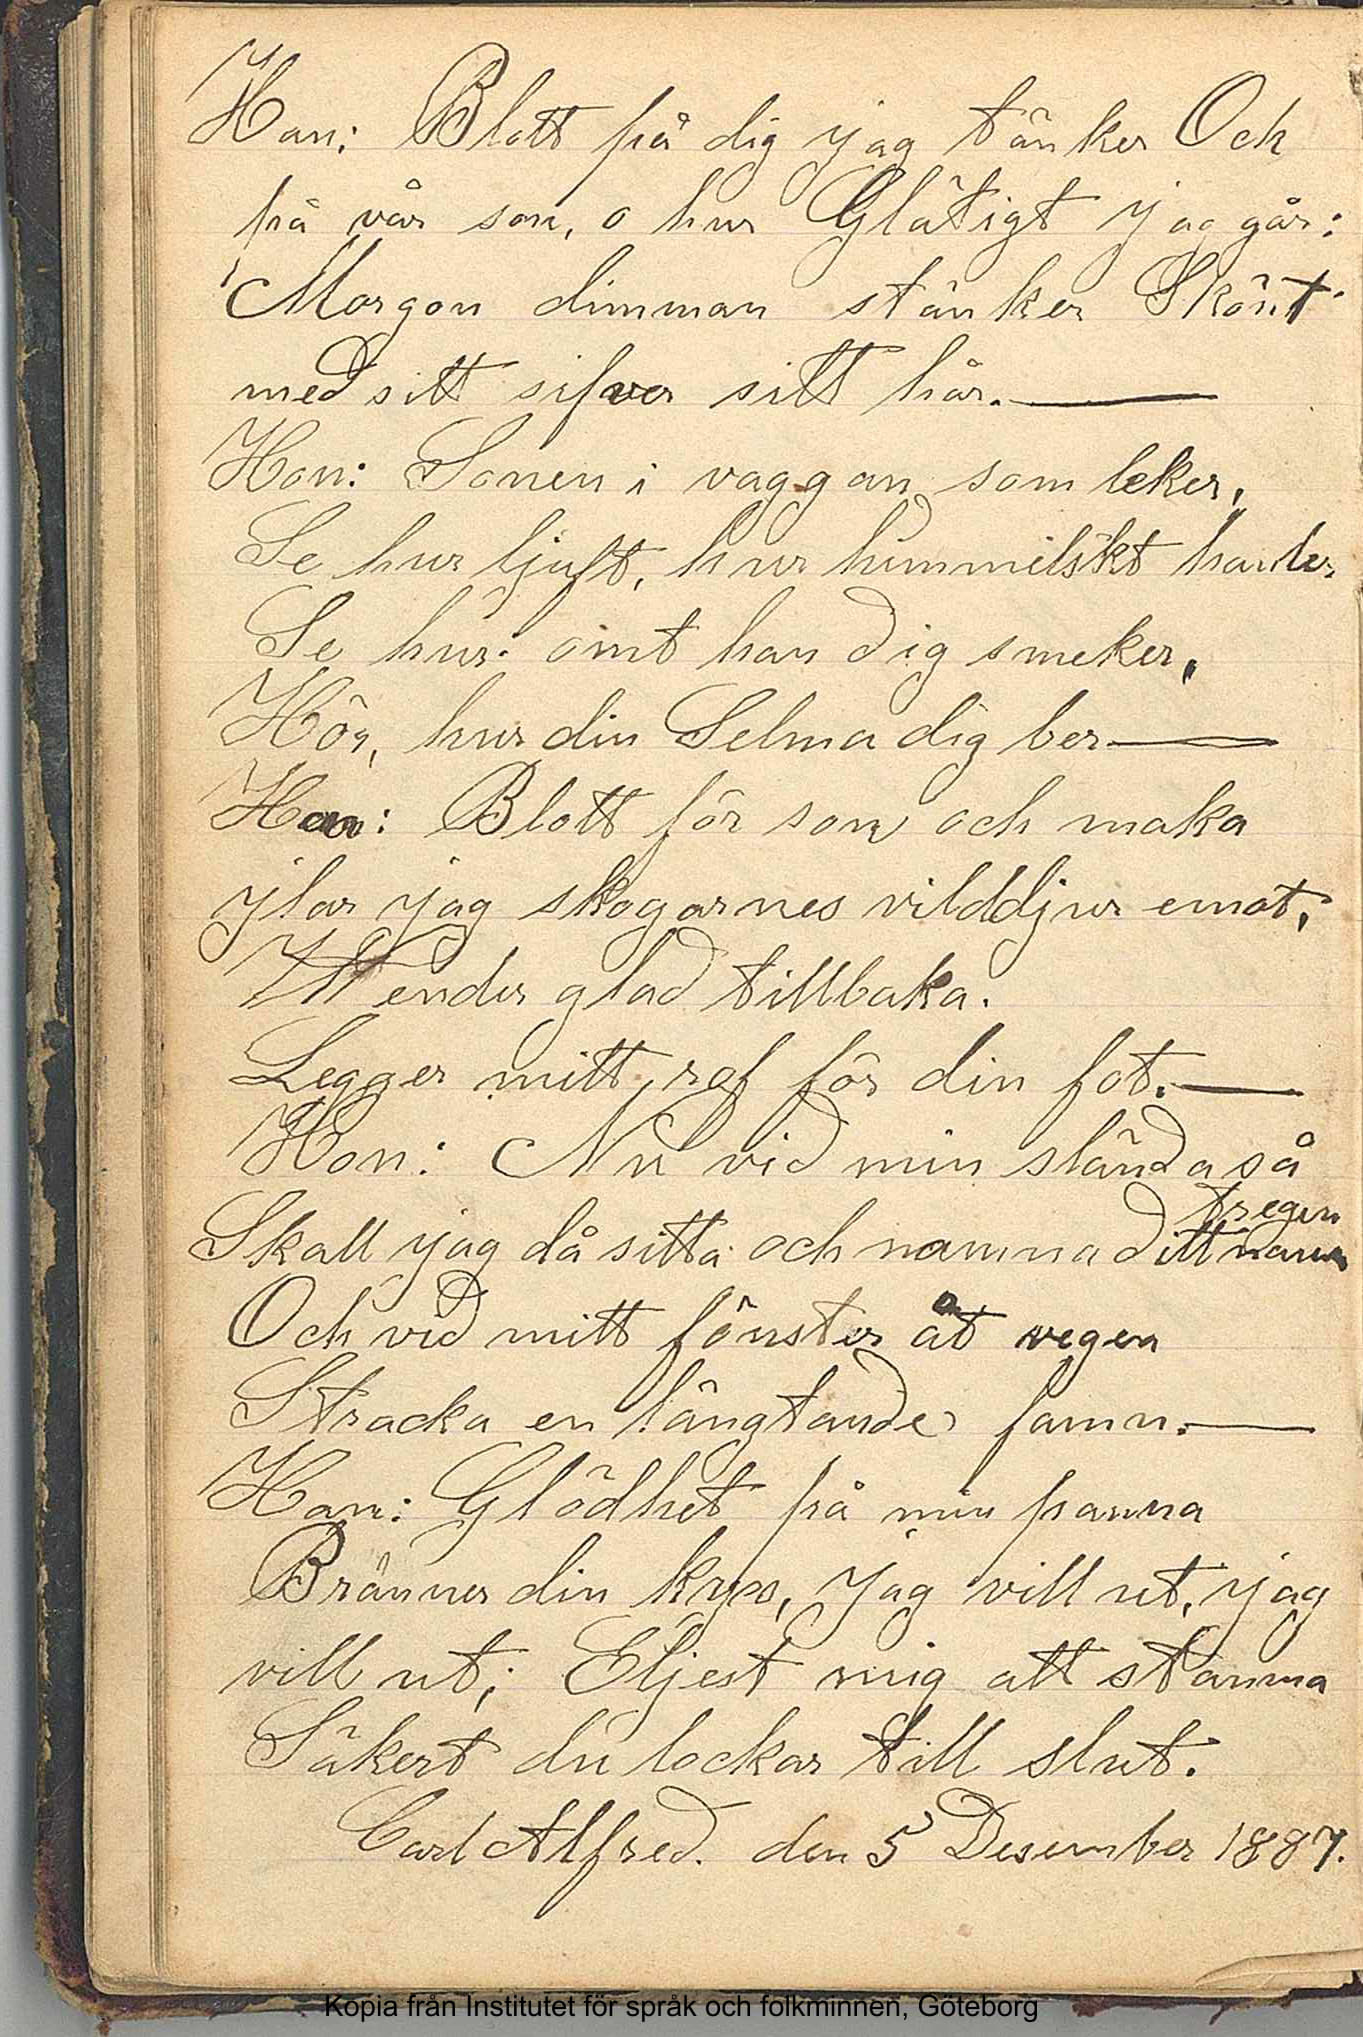 Han: Blott på dig jag tänker Och
på vår son, o hur Glätigt jag går:
Morgon dimman stänker Skönt
med sitt silfver sitt hår.
Hon: Sonen i vaggan som leker,
Se hur ljuft, hur himmelskt han ler,
Se hur ömt han dig smeker,
Hör, hur din Selma dig ber
Han: Blott för son och maka
ylar jag skogarnes vilddjur emot,
Wender glad tillbaka.
Legger mitt rof för din fot.
Hon: Nu vid min slända så
tregen
Skall jag då sitta och namna ditt namn
Och vid mitt fönster åt vegen
Stracka en längtande famn.
Han: Glödhet på min panna
Bränner din kyss, Jag vill ut, jag
vill ut; Eljest mig att stanna
Säkert du lockar till slut.
Carl Alfred. den 5 Desember 1887.
Kopia från Institutet för språk och folkminnen, Göteborg